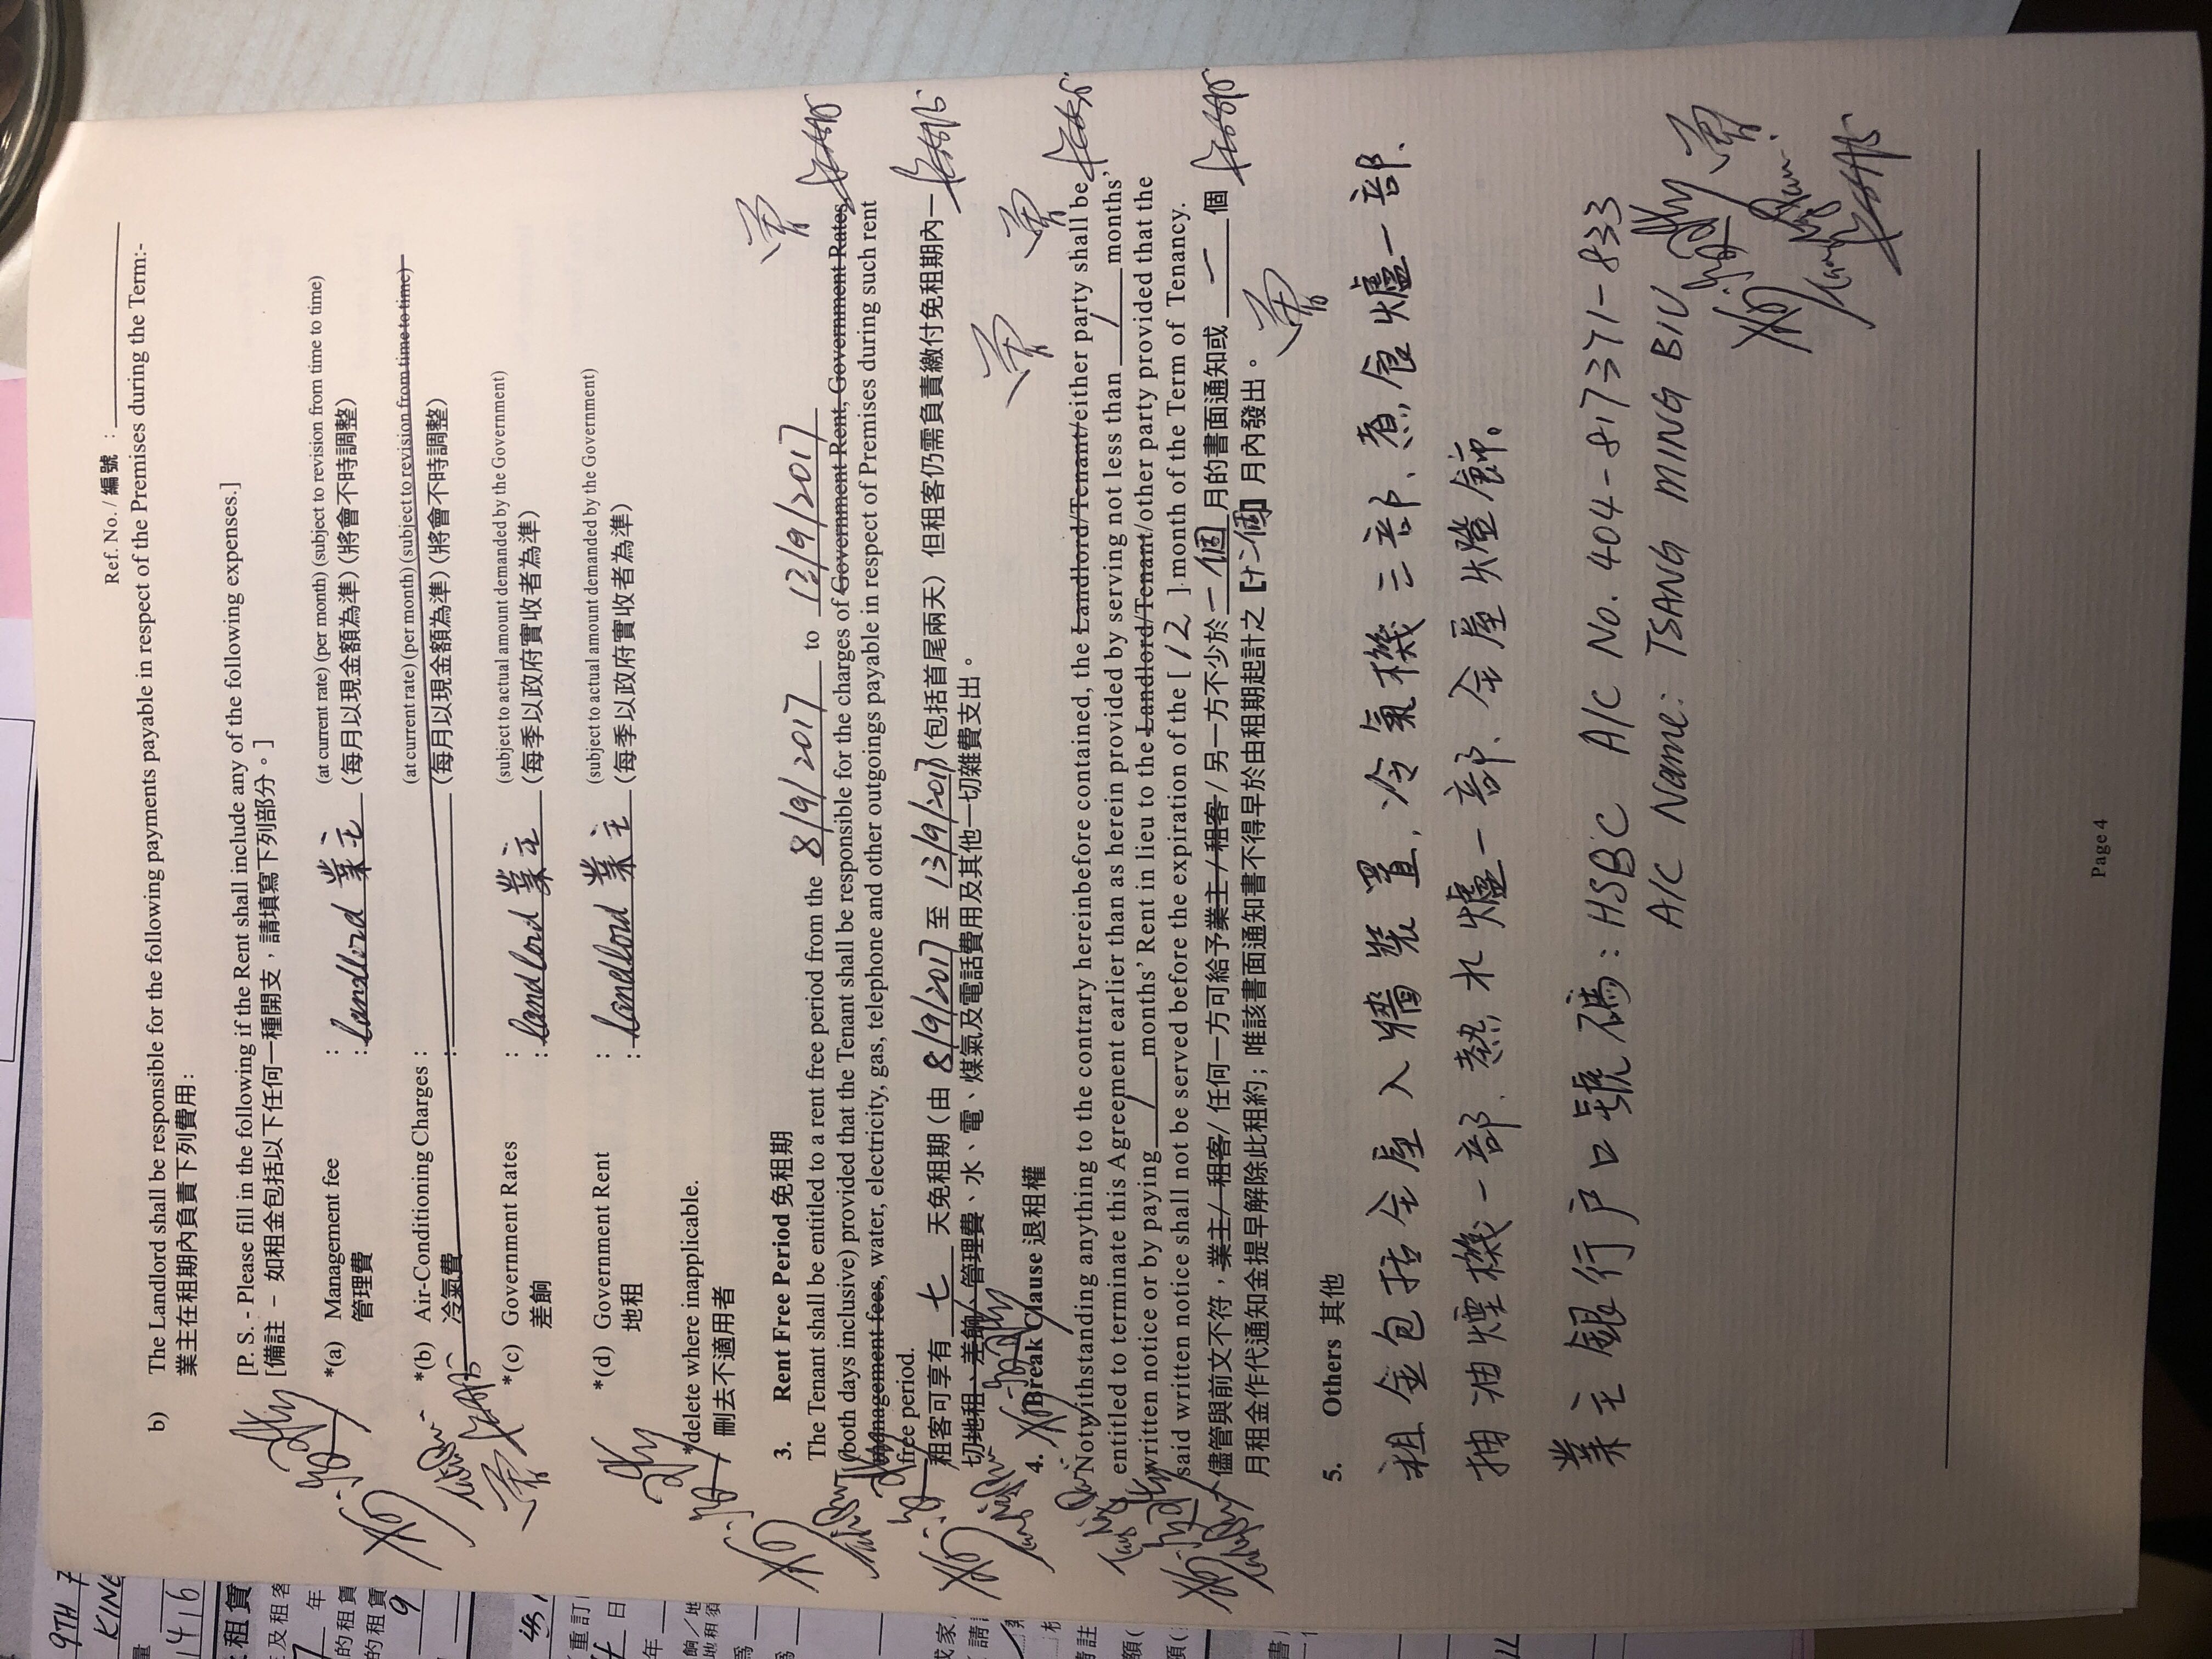 Ref. No. / 編號 :
b) The Landlord shall be responsible for the following payments payable in respect of the Premises during the Term:-
業主在租期內負責下列費用:
[P. S. - Please fill in the following if the Rent shall include any of the following expenses.]
[備註 - 如租金包括以下任何一種開支，請填寫下列部分。]
*(a) Management fee : (at current rate) (per month) (subject to revision from time to time)
管理費 : Landlord 業主 (每月以現金額為準) (將會不時調整)
*(b) Air-Conditioning Charges : (at current rate) (per month) (subject to revision from time to time)
冷氣費 : (每月以現金額為準) (將會不時調整)
*(c) Government Rates : (subject to actual amount demanded by the Government)
差餉 : Landlord 業主 (每季以政府實收者為準)
*(d) Government Rent : (subject to actual amount demanded by the Government)
地租 : Landlord 業主 (每季以政府實收者為準)
*delete where inapplicable.
刪去不適用者
3. Rent Free Period 免租期
The Tenant shall be entitled to a rent free period from the 8/9/2017 to 13/9/2017
(both days inclusive) provided that the Tenant shall be responsible for the charges of Government Rent, Government Rates,
management fees, water, electricity, gas, telephone and other outgoings payable in respect of Premises during such rent
free period.
租客可享有 七 天免租期 (由 8/9/2017 至 13/9/2017 (包括首尾兩天) 但租客仍需負責繳付免租期內一
切地租、差餉、管理費、水、電、煤氣及電話費用及其他一切雜費支出。
4. Break Clause 退租權
Notwithstanding anything to the contrary hereinbefore contained, the Landlord/Tenant/either party shall be
entitled to terminate this Agreement earlier than as herein provided by serving not less than 1 months'
written notice or by paying 1 months' Rent in lieu to the Landlord/Tenant/other party provided that the
said written notice shall not be served before the expiration of the [ 12 ] month of the Term of Tenancy.
儘管與前文不符，業主/租客/任何一方可給予業主/租客/另一方不少於 一個 月的書面通知或 一 個
月租金作代通知金提早解除此租約；唯該書面通知書不得早於由租期起計之【十二個】月內發出。
5. Others 其他
租金包括全屋入牆裝置,冷氣機三部、煮食爐一部、
抽油煙機一部、熱水爐一部、全屋燈飾。
業主銀行户口號碼: HSBC A/C No. 404-817371-833
A/C Name: TSANG MING BIU
Page 4
9TH
KINE
租賃